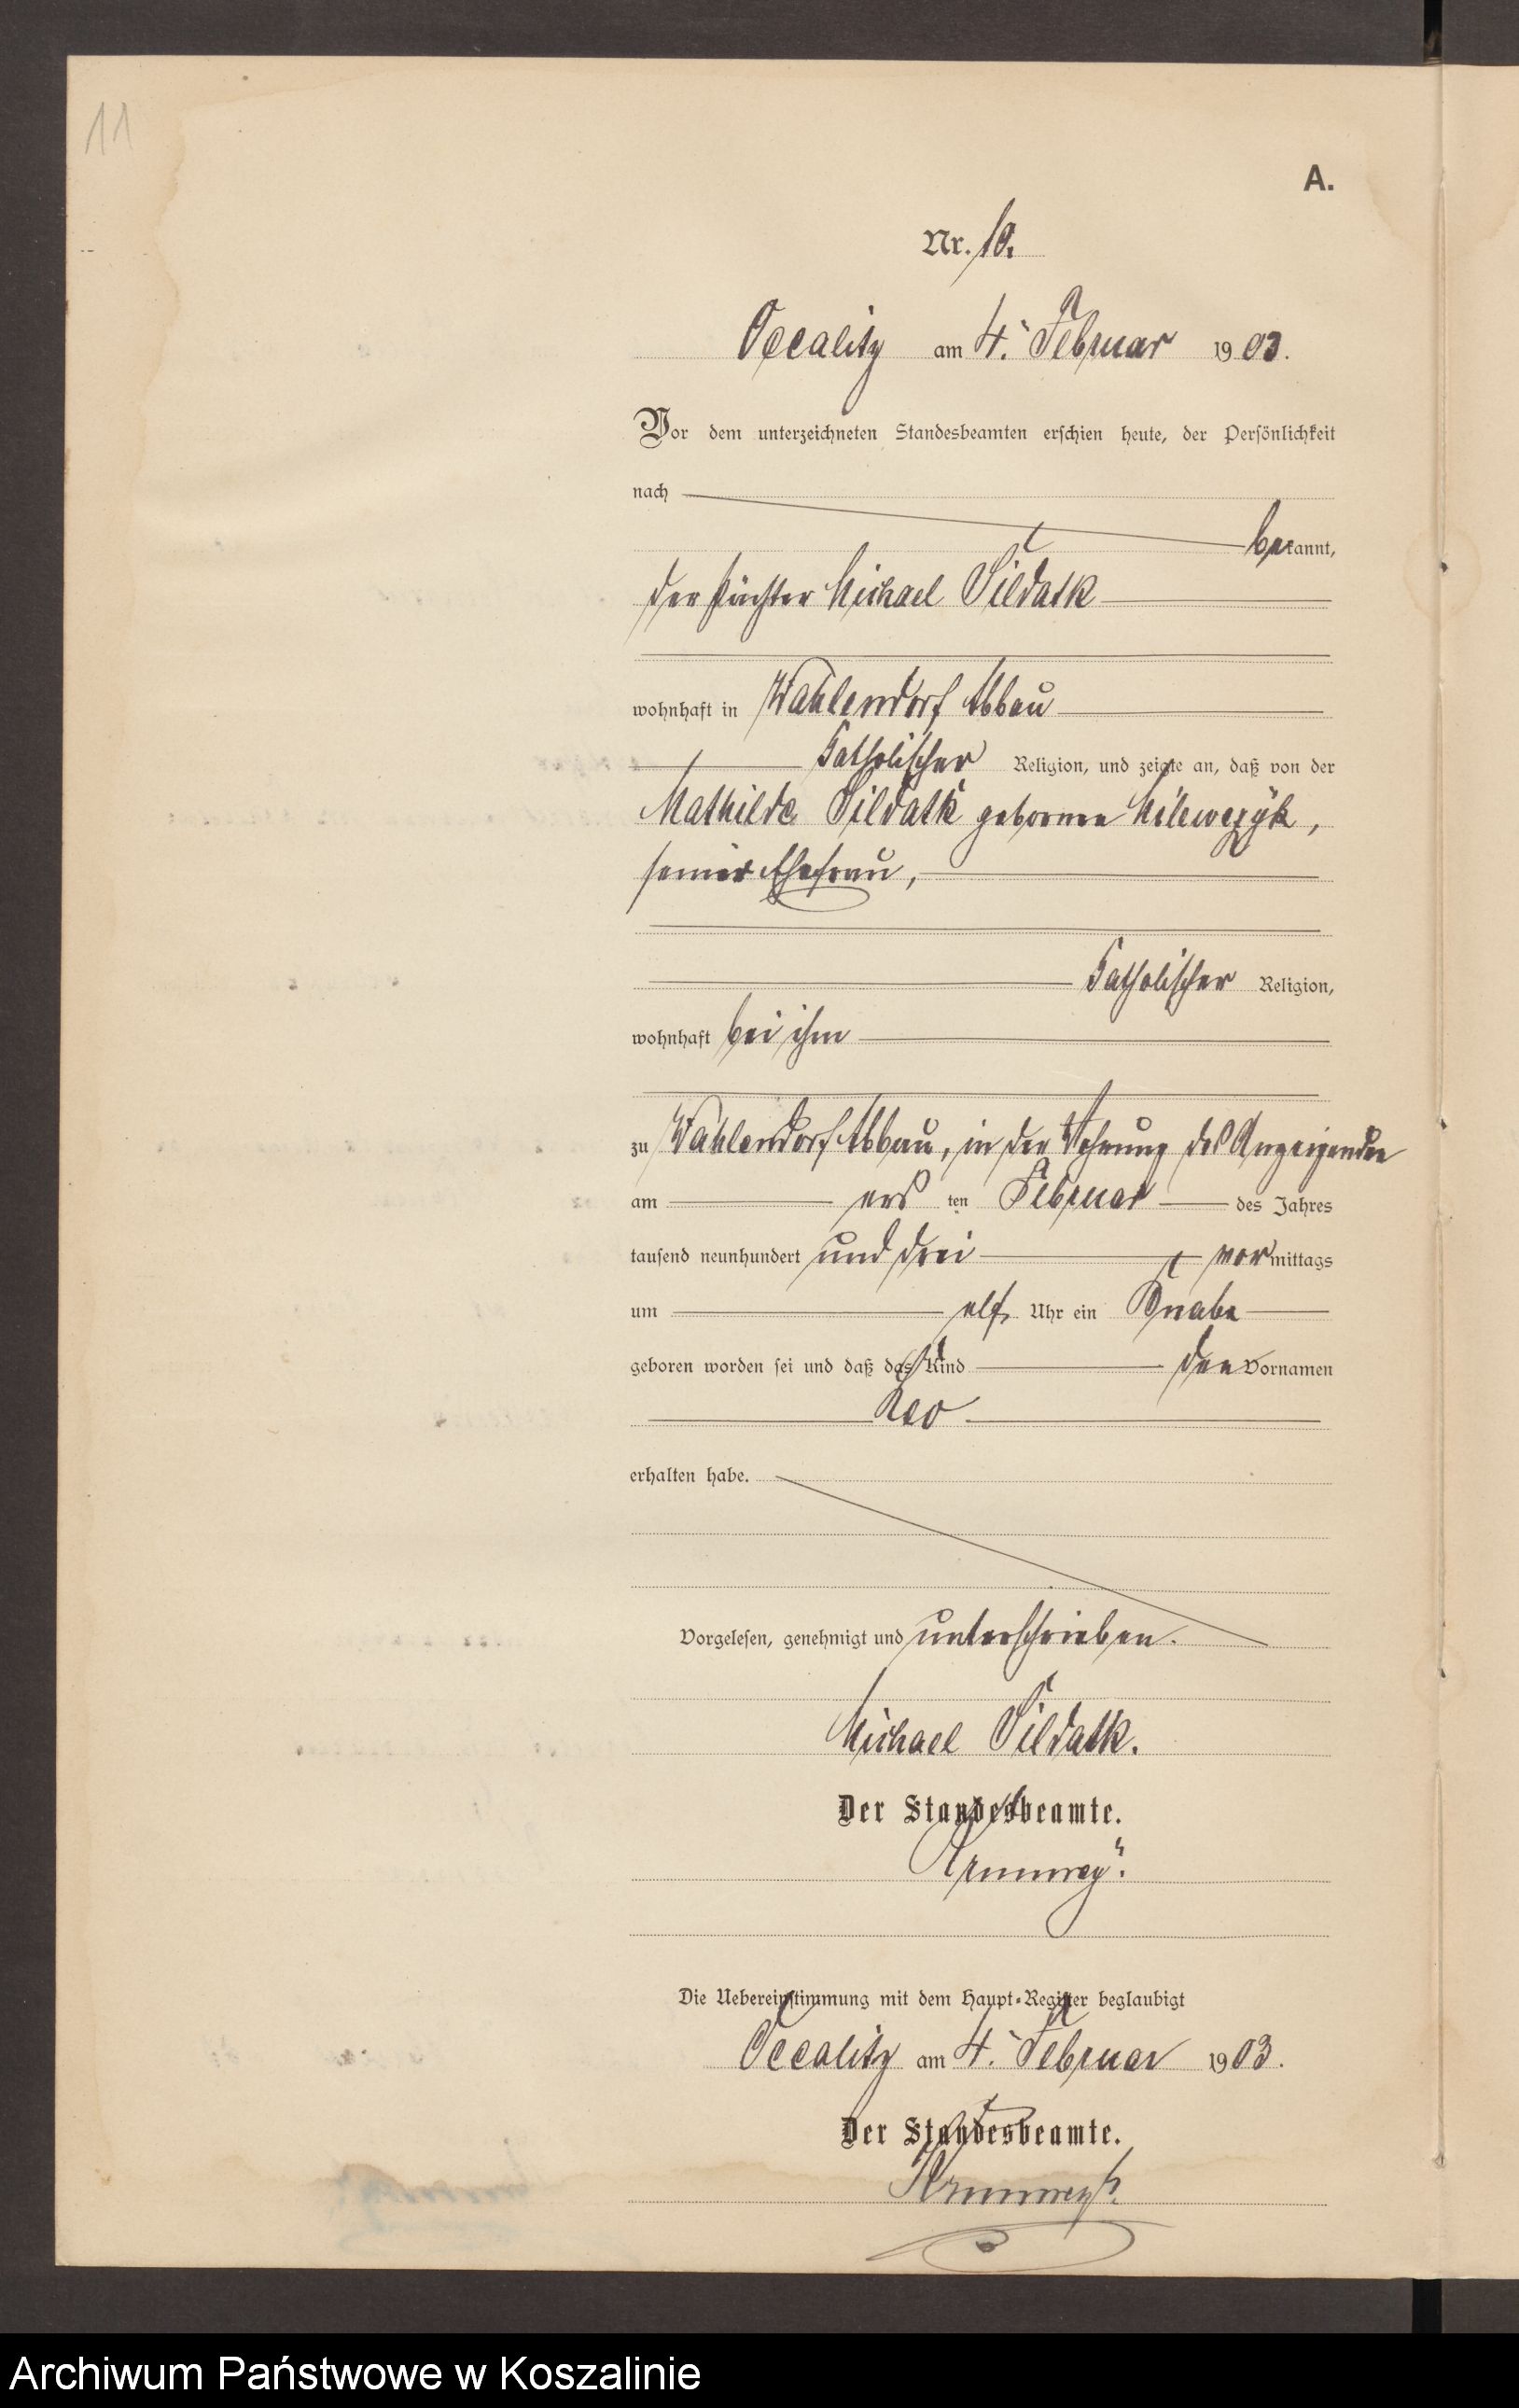 11
A.
Nr. 10.
Occalitz am 4. Februar 1903.
Vor dem unterzeichneten Standesbeamten erschien heute, der Persönlichkeit
nach
bekannt,
der Pächter Michael Sildatk
wohnhaft in Wahlendorf Abbau
katholischer Religion, und zeigte an, daß von der
Mathilde Sildatk geborenen Milewczyk,
seiner Ehefrau,
katholischer Religion,
wohnhaft bei ihm
zu Wahlendorf Abbau, in der Wohnung des Anzeigenden
am ersten Februar des Jahres
tausend neunhundert und drei vormittags
um elf Uhr ein Knabe
geboren worden sei und daß das Kind den Vornamen
Leo
erhalten habe.
Vorgelesen, genehmigt und unterschrieben.
Michael Sildatk.
Der Standesbeamte.
Die Uebereinstimmung mit dem Haupt-Register beglaubigt
Occalitz am 4. Februar 1903.
Der Standesbeamte.
Archiwum Państwowe w Koszalinie